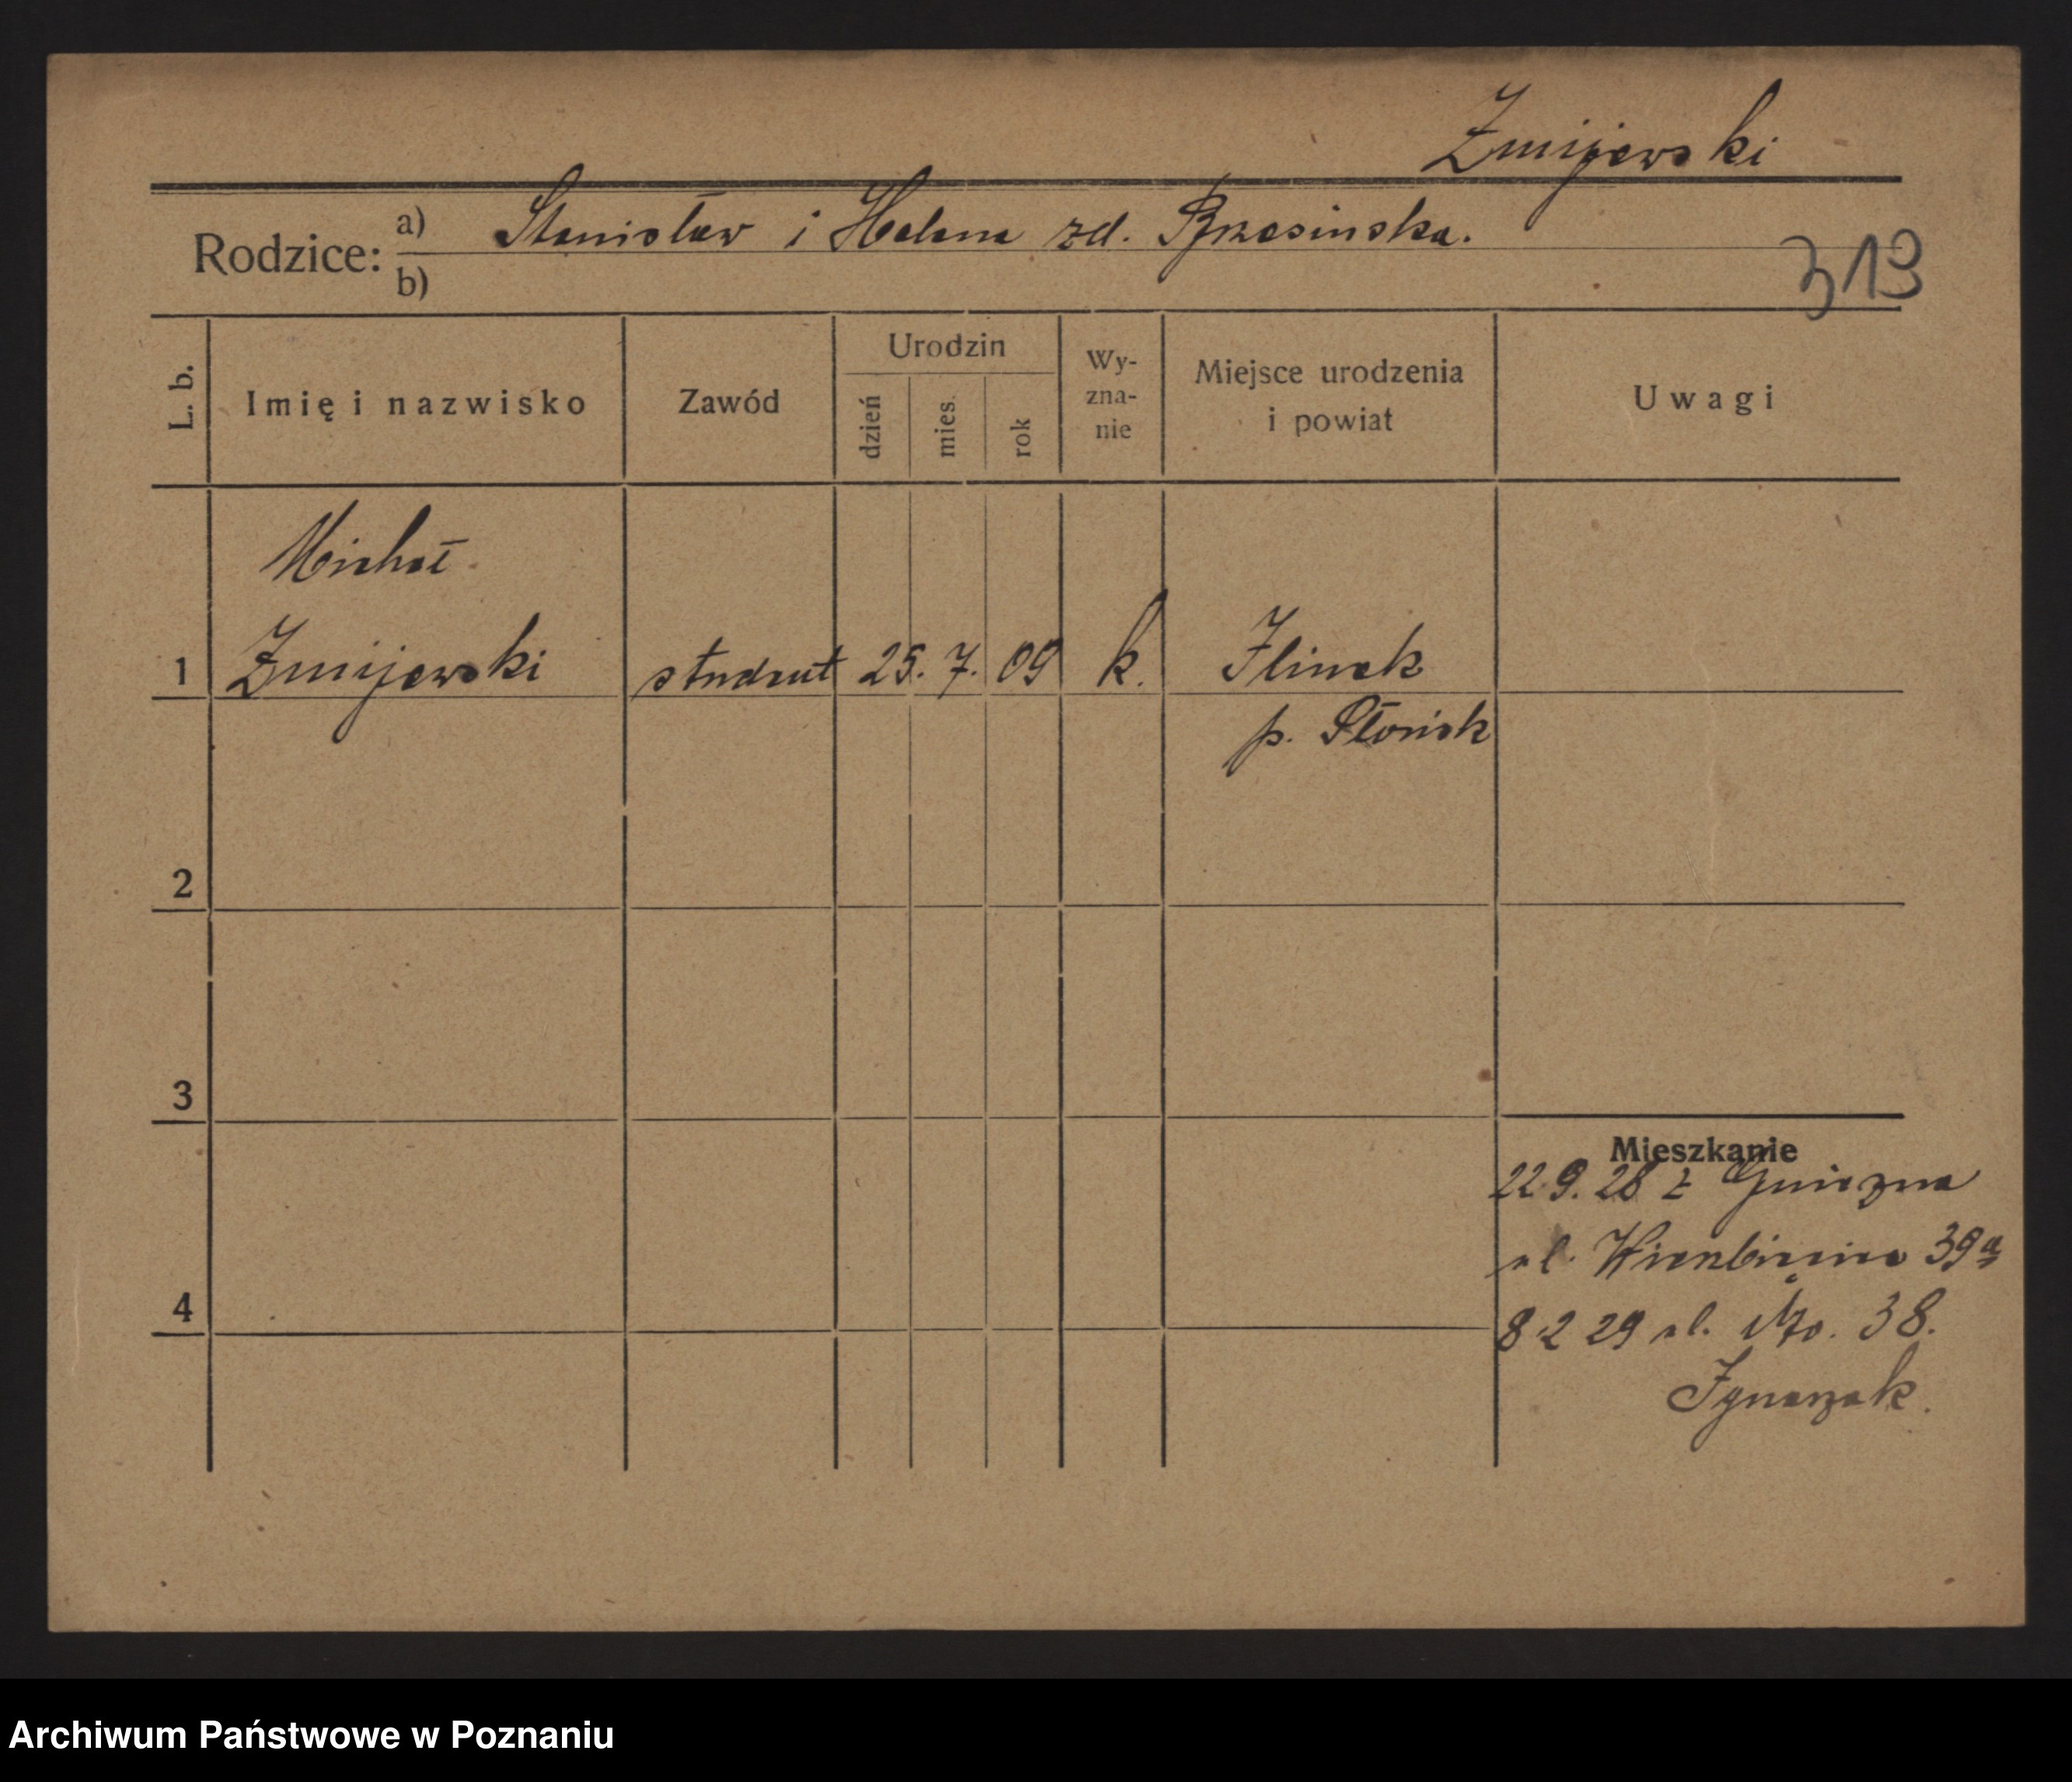 Żmijewski
Rodzice: a) Stanisław i Helena zd. Brzesinska.
b)
319
L. b. Imię i nazwisko Zawód Urodzin dzień mies. rok Wy-zna-nie Miejsce urodzenia i powiat Uwagi
Michał
1 Żmijewski student 25. 7. 09 k. Ilinek
p. Płońsk
2
3
Mieszkanie
22.9.28 z Gniezna
ul. Wierzbięcice 39a
4
8 2 29 ul. 38.
Ignaszak.
Archiwum Państwowe w Poznaniu